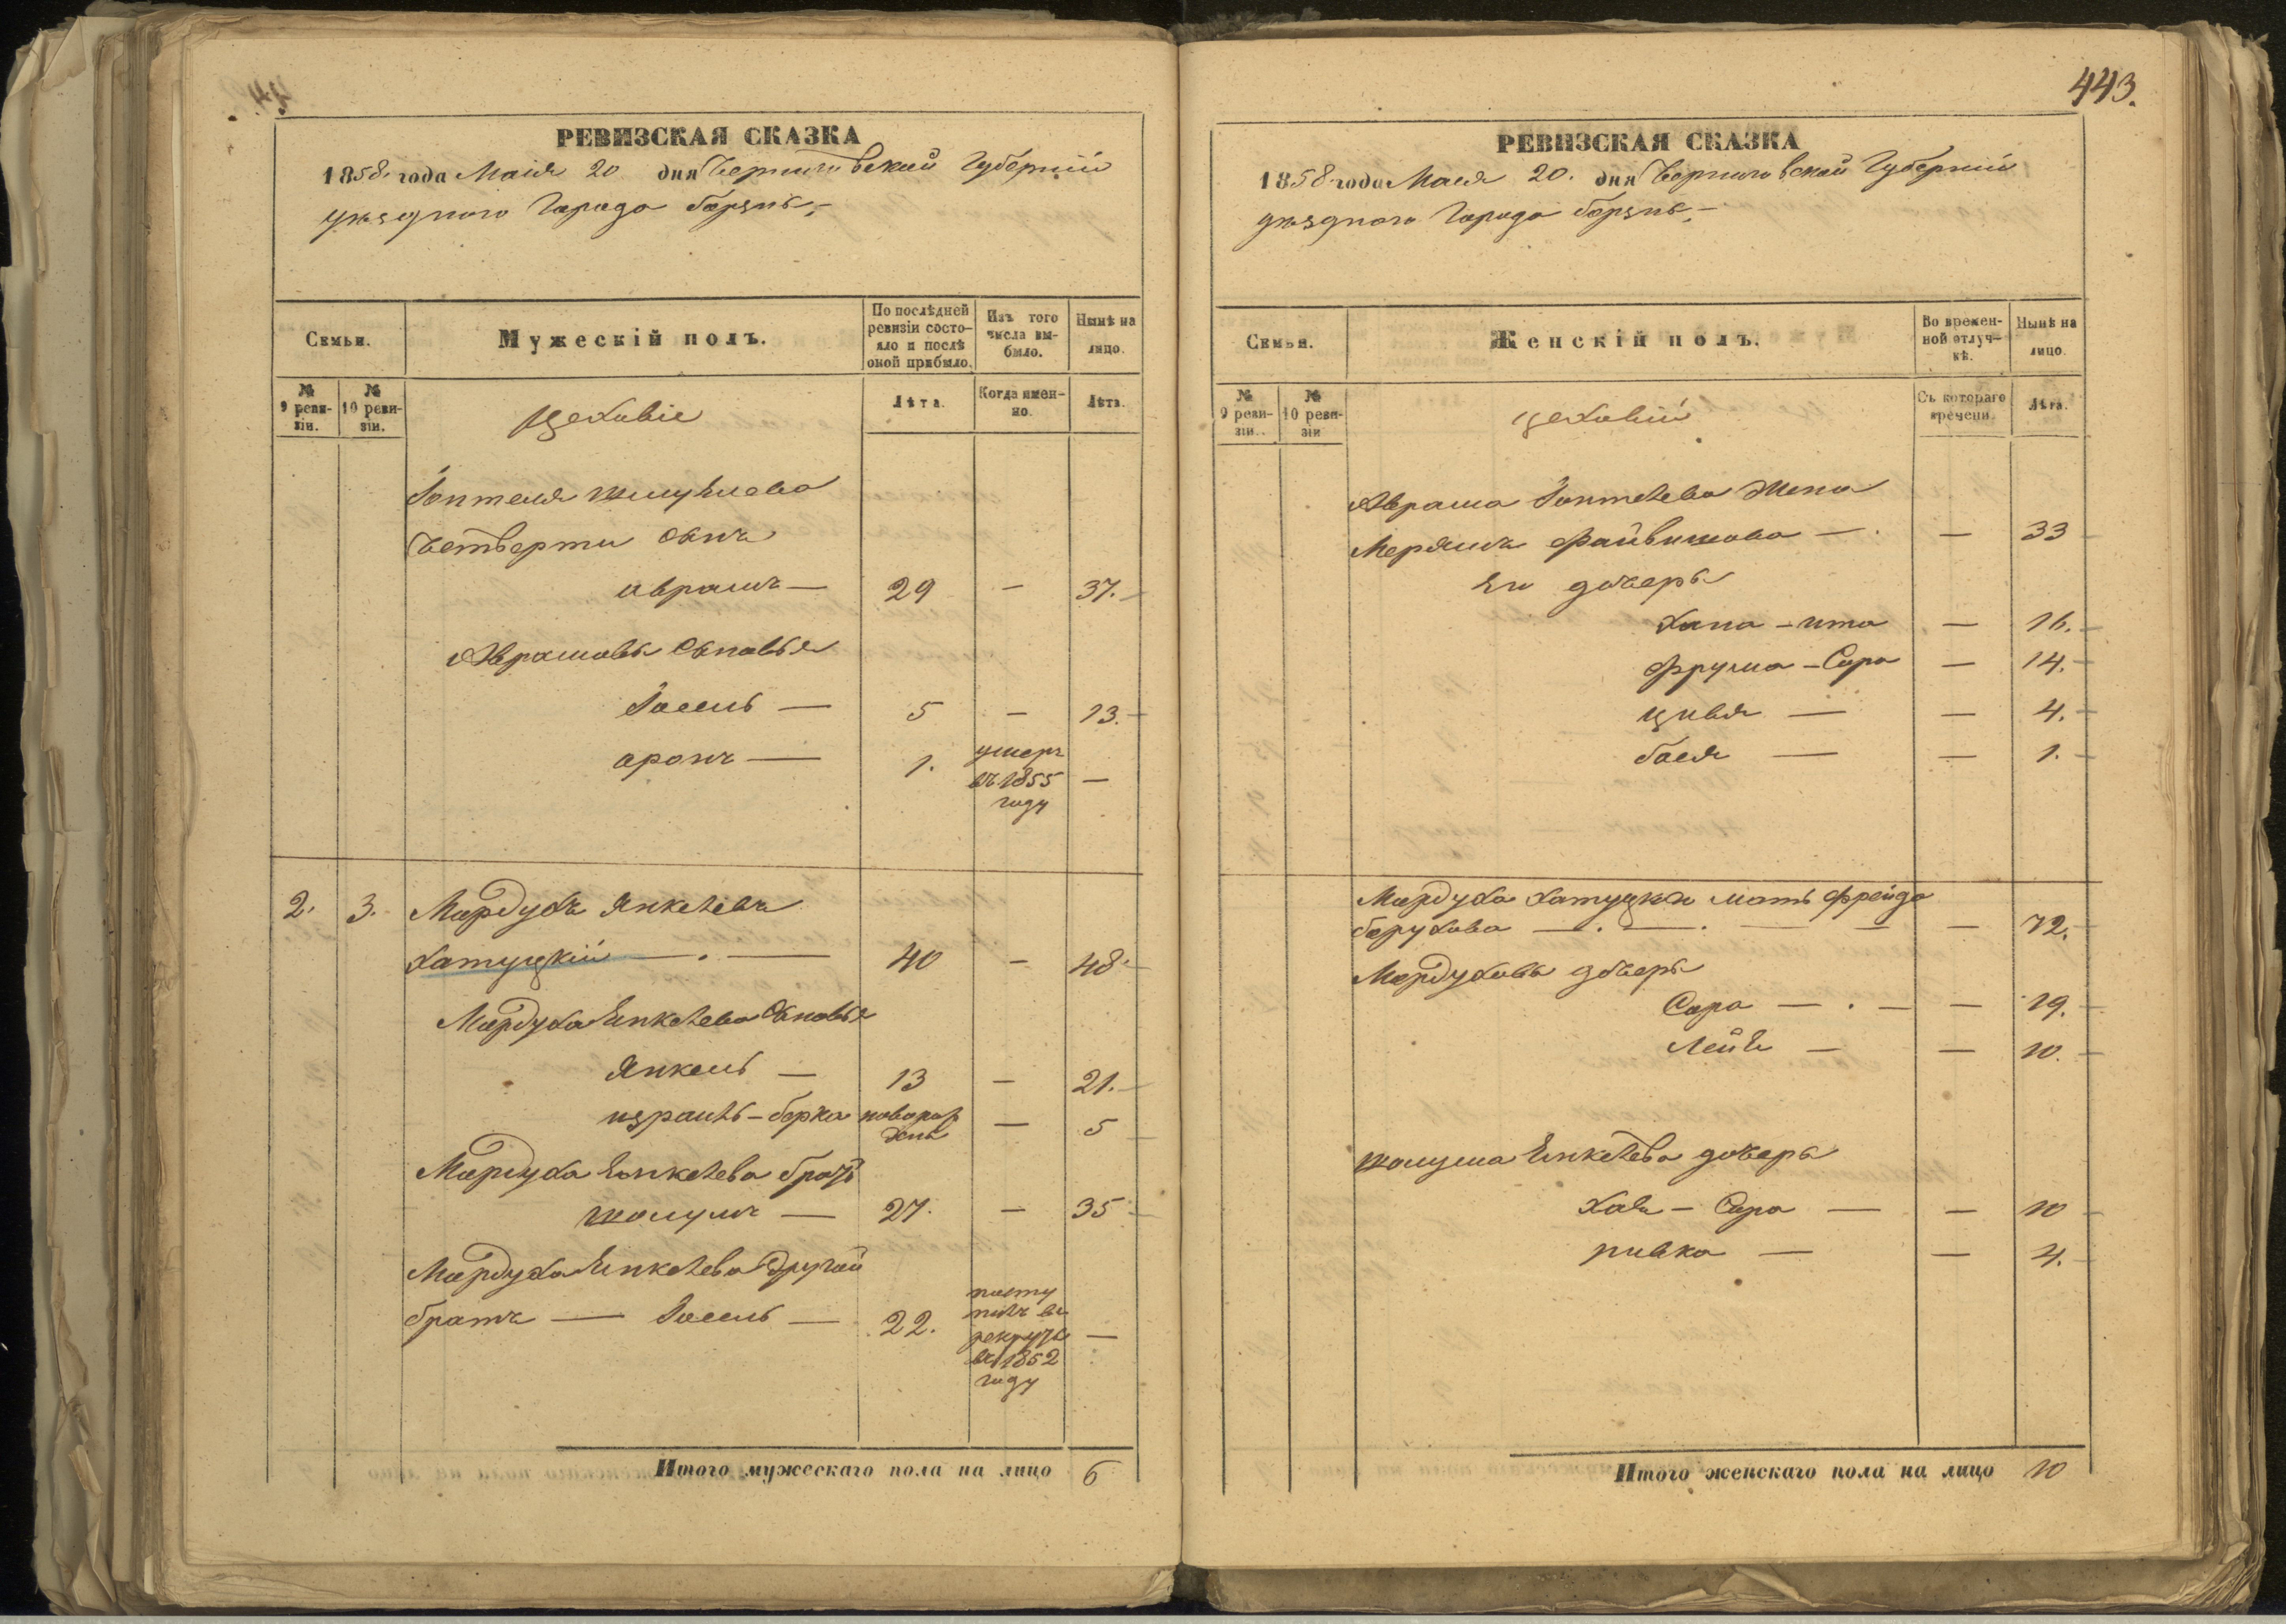 РЕВИЗСКАЯ СКАЗКА
1858 года Маія 20 дня Черниговской Губерніи
уѣзднаго Города борзнѣ,-
Семьи.
Мужескій полъ.
По послѣдней ревизіи состояло и послѣ оной прибыло.
Изъ того числа выбыло.
Нынѣ на лицо.
№ 9 ревизіи.
№ 10 ревизіи.
цеховіе
Лѣта.
Когда именно.
Лѣта.
Четверти сынъ
аврамъ — 29 — 37.
Аврамовы Сыновья
Іосель — 5 — 13.
аронъ — 1. умеръ въ 1855 году —
2. 3. Мордухъ Янкелевъ
Хатуцкій — . — 40 — 48.
Мордуха Янкелева Сыновья
Янкель — 13 — 21.
израиль-берка новорожденъ — 5
Мордуха Янкелева братъ
шолумъ — 27. — 35
Мордуха Янкелева другой
братъ — Іосель — 22. поступилъ въ рекруты въ 1852 году —
Итого мужескаго пола на лицо 6
443.
РЕВИЗСКАЯ СКАЗКА
1858 года Маія 20. дня Черниговской Губерніи
уѣзднаго Города борзнѣ,-
Семьи.
Женскій полъ.
Во временной отлучкѣ.
Нынѣ на лицо.
№ 9 ревизіи.
№ 10 ревизіи
цеховій
Съ котораго времени.
Лѣта.
Аврама Іонтелева Жена
Меряшъ Файвишова — . — 33
Его дочеры
Хана-ита — 16.
Фрума-Сара — 14.
цивя — — 4.
бася — — 1.
Мордуха Хатуцкаго мать Фрейда
берухова — . — . — — — 72.
Мордуховы дочеры
Сара — . — — 19.
Лейя — — 10.
шолума Янкелева дочеры
Хая - Сара — — 10
ривка — — 4.
Итого женскаго пола на лицо 10